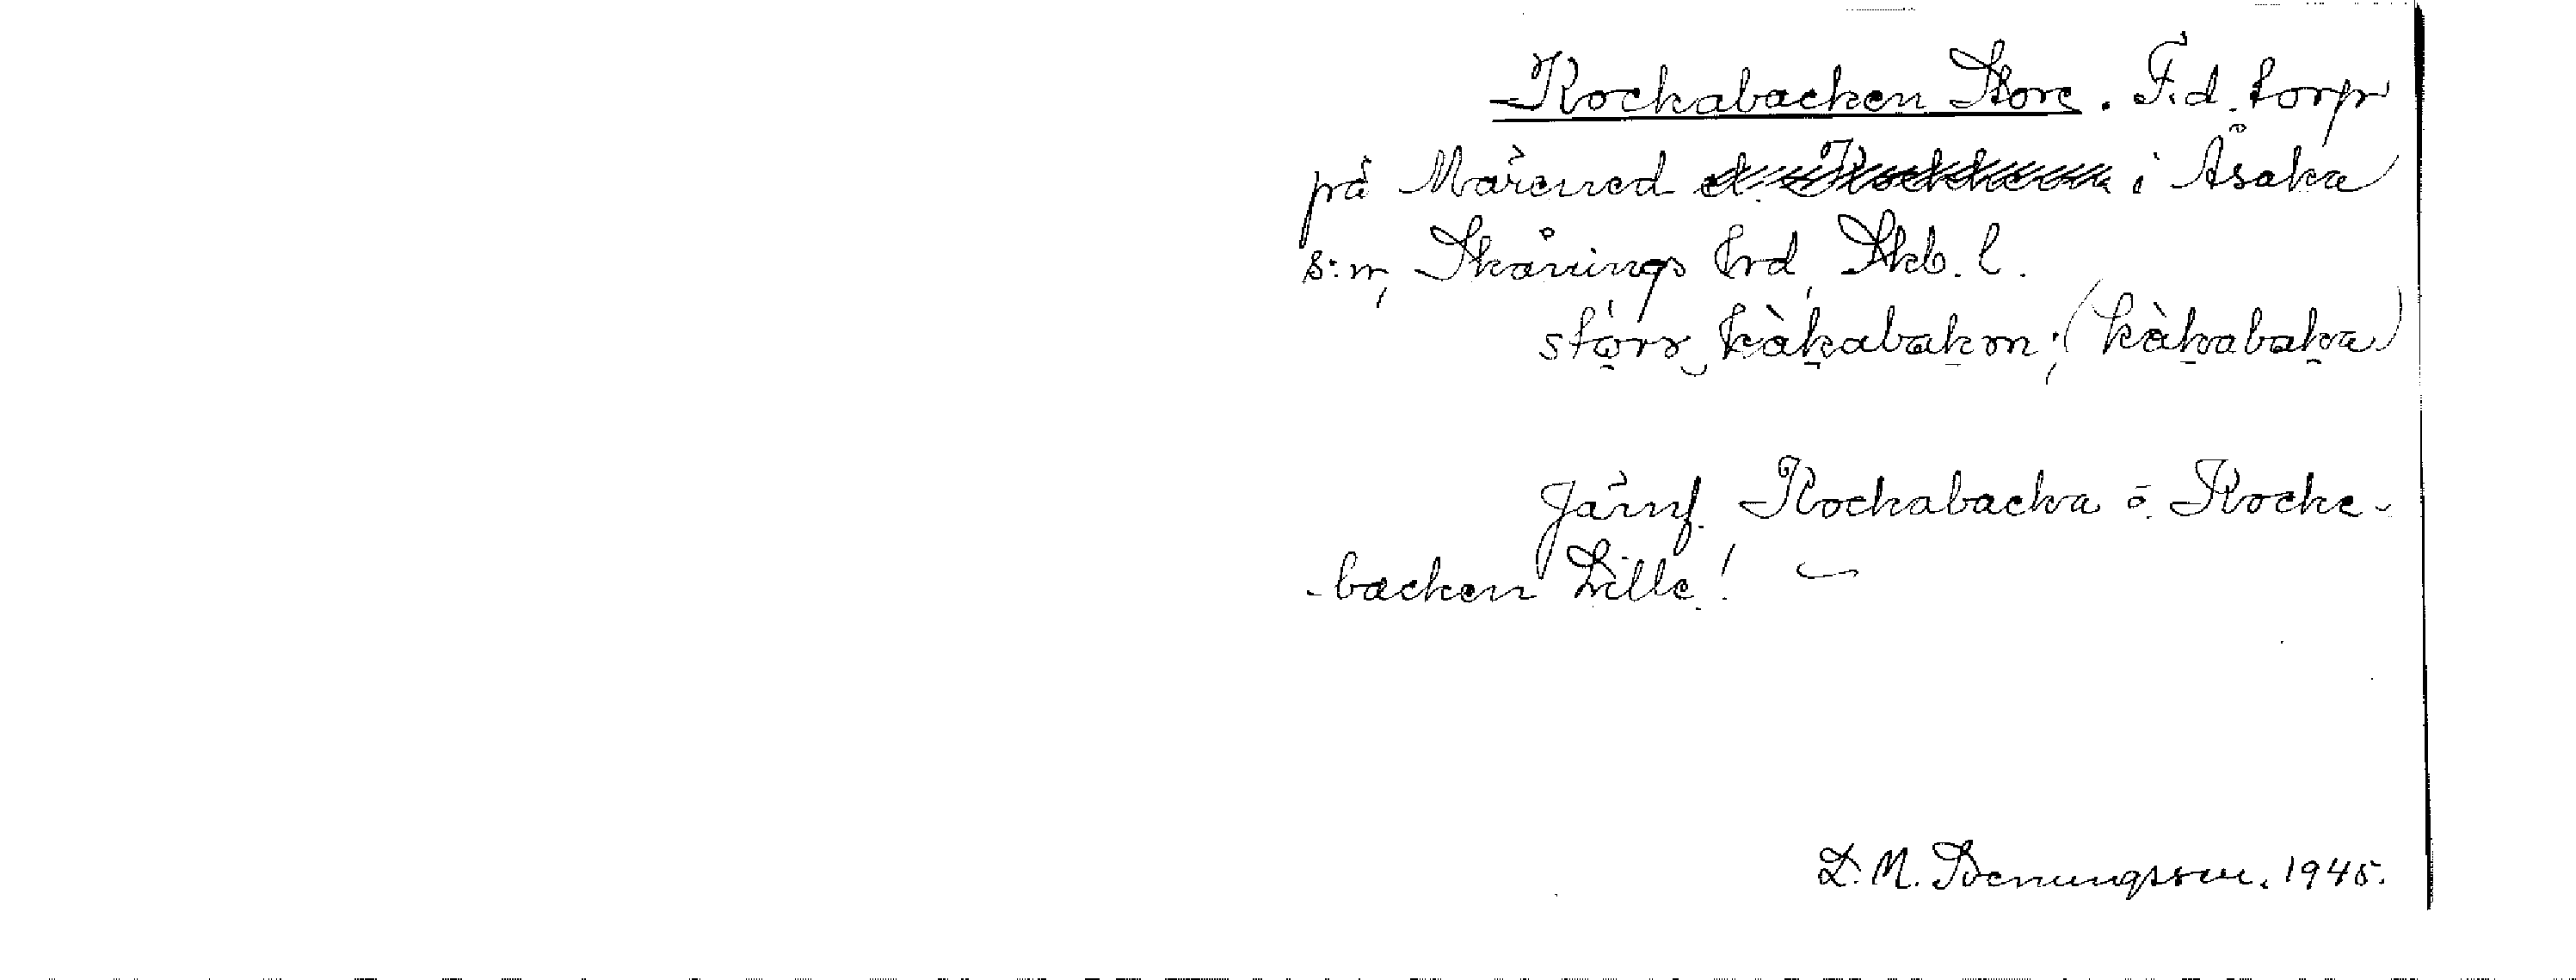 Kockabacken Store. F.d. torp
på Marened i Åsaka
s:n, Skånings hrd, Skb. l.
störr kàkabakən; (kàkabaka)
Jämf. Kockabacka o. Kocke-
-backen Lille!
L. M. Svenungsson. 1945.